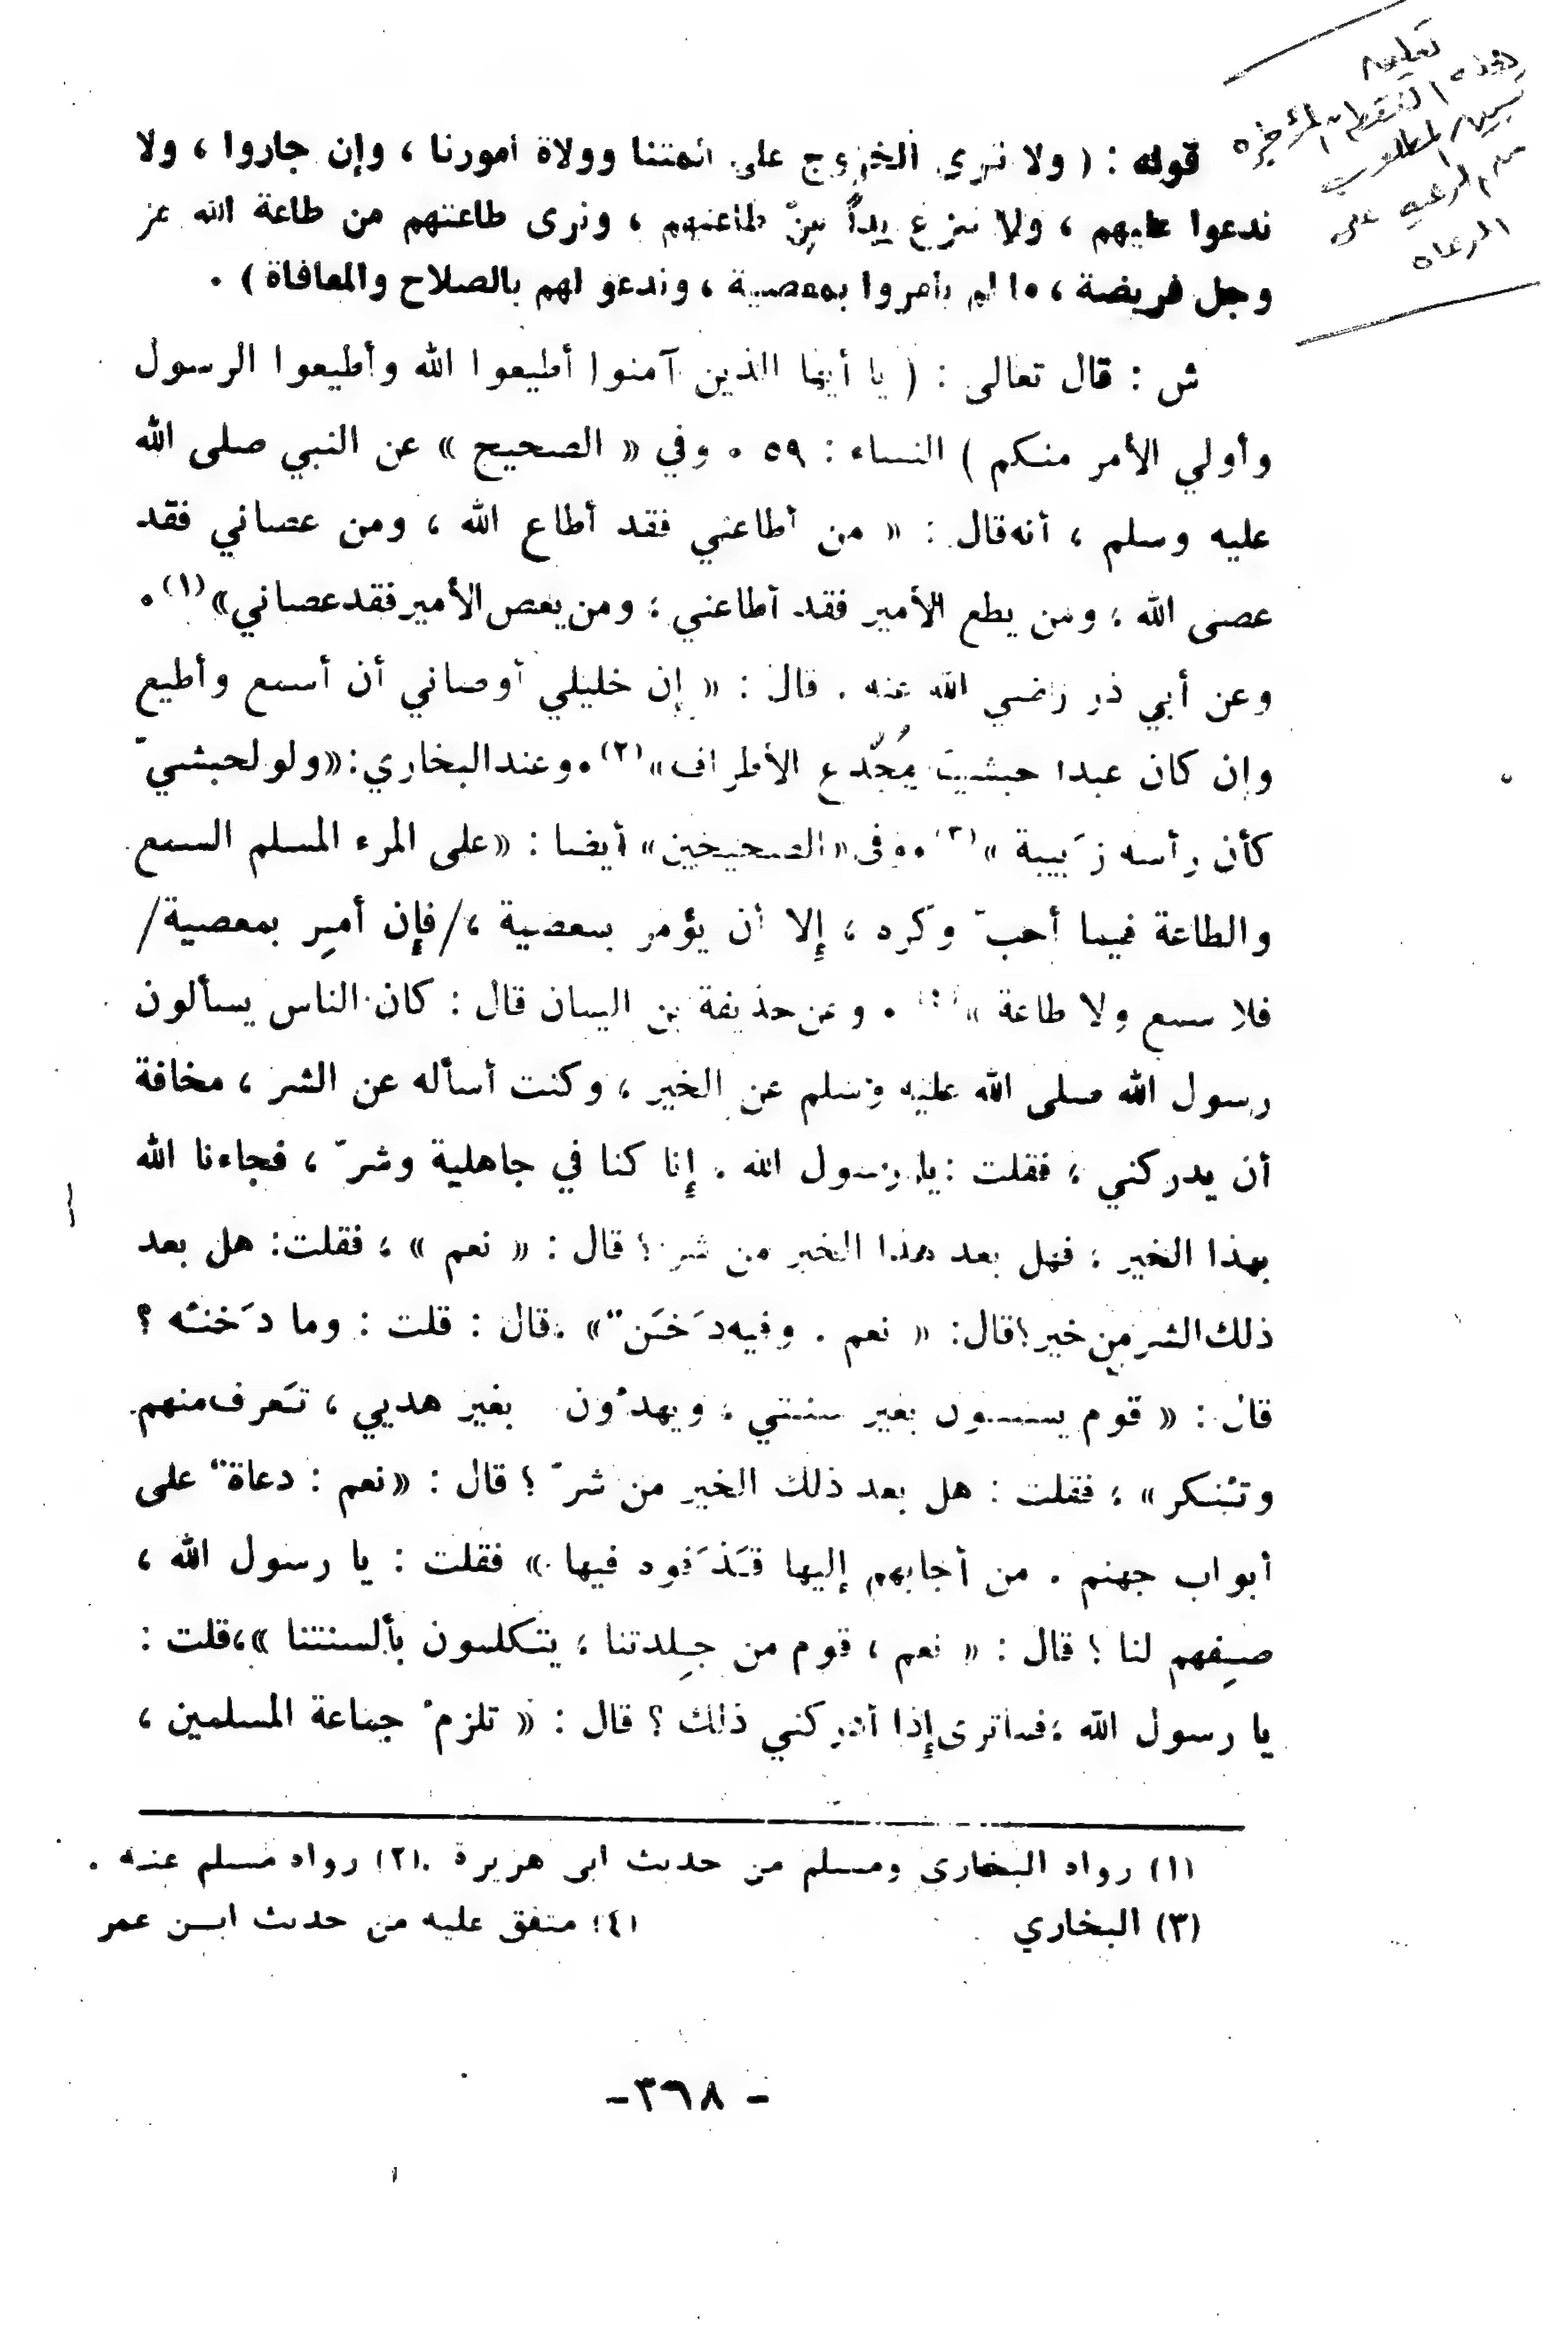 قوله : ( ولا نرى الخروج على ائمتنا وولاة أمورنا ، وإن جاروا ، ولا
ندعوا عليهم ، ولا ننزع يداً مِنْ طاعتهم ، ونرى طاعتهم من طاعة الله عز
وجل فريضة ، ما لم يأمروا بمعصية ، وندعو لهم بالصلاح والمعافاة ) .
ش : قال تعالى : ( يا أيها الذين آمنوا أطيعوا الله وأطيعوا الرسول
وأولي الأمر منكم ) النساء : ٥٩ . وفي « الصحيح » عن النبي صلى الله
عليه وسلم ، أنه قال : « من أطاعني فقد أطاع الله ، ومن عصاني فقد
عصى الله ، ومن يطع الأمير فقد أطاعني ، ومن يعص الأمير فقد عصاني»(١).
وعن أبي ذر رضي الله عنه . قال : « إن خليلي أوصاني أن أسمع وأطيع
وإن كان عبدا حبشيا مُجَدَّع الأطراف»(٢). وعند البخاري: «ولو لحبشيّ
كأن رأسه زَبيبة »(٣). وفي «الصحيحين» أيضا : «على المرء المسلم السمع
والطاعة فيما أحبّ وكره ، إلا أن يؤمر بمعصية ،/فإن أمِر بمعصية/
فلا سمع ولا طاعة »(٤) . وعن حذيفة بن اليمان قال : كان الناس يسألون
رسول الله صلى الله عليه وسلم عن الخير ، وكنت أسأله عن الشر ، مخافة
أن يدركني ، فقلت : يا رسول الله . إنا كنا في جاهلية وشرّ ، فجاءنا الله
بهذا الخير ، فهل بعد هذا الخير من شر ؟ قال : « نعم » ، فقلت: هل بعد
ذلك الشر من خير؟ قال: « نعم . وفيه دَخَنٌ» . قال : قلت : وما دَخَنُه ؟
قال : « قوم يستنون بغير سنتي ، ويهدُون بغير هديي ، تَعرف منهم
وتُنكر » ، فقلت : هل بعد ذلك الخير من شرّ ؟ قال : «نعم : دعاةٌ على
أبواب جهنم . من أجابهم إليها قَذَفوه فيها » فقلت : يا رسول الله ،
صِفهم لنا ؟ قال : « نعم ، قوم من جِلدتنا ، يتكلمون بألسنتنا »، قلت :
يا رسول الله ، فما ترى إذا أدركني ذلك ؟ قال : « تلزمُ جماعة المسلمين ،
(١) رواه البخاري ومسلم من حديث ابي هريرة . (٢) رواه مسلم عنه .
(٣) البخاري (٤) متفق عليه من حديث ابن عمر
- ٣٦٨-